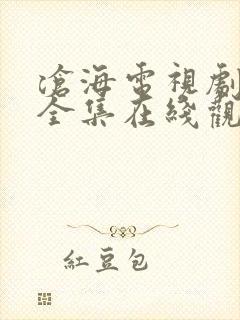 滄海電視劇
全集在綫觀
紅豆包